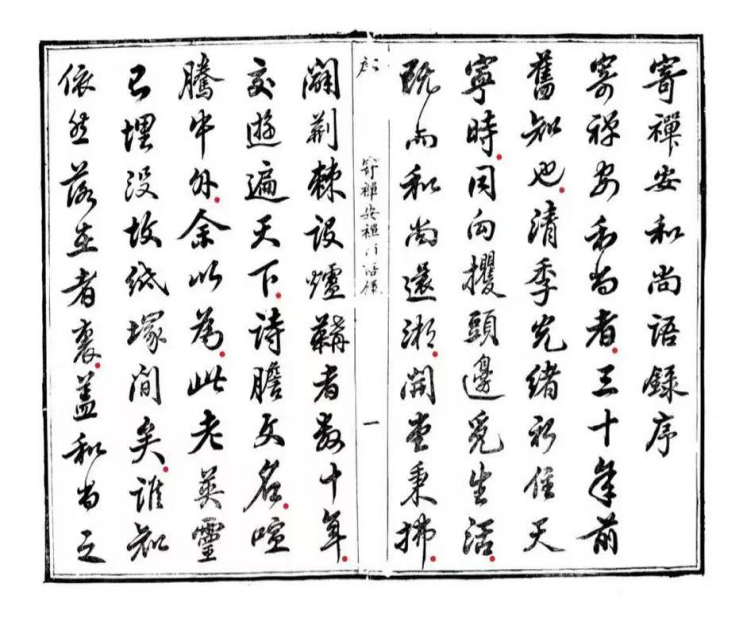 寄禪安和尚語錄序
寄禪安和尚者三十年前
舊知也清季光緒初住天
寧時同向攫頭邊覓生活
既而和尚還湘開堂秉拂
寄禪安禪師語錄
一
闢荆棘設爐鞴者數十年
交遊遍天下詩膽文名喧
騰中外余以為此老英靈
已埋沒故紙塚間矣誰知
依然落在者裏蓋和尚之